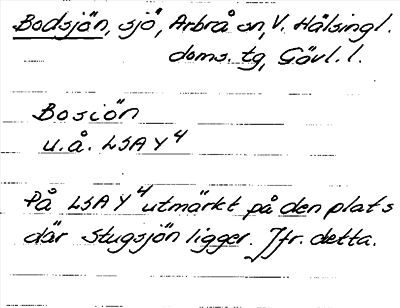 Bodsjön, sjö, Arbrå sn, V. Hälsingl.
doms. tg, Gävl. l.
Bosiön
u.å. LSA Y4
På LSA Y4 utmärkt på den plats
där Stugsjön ligger. Jfr. detta.